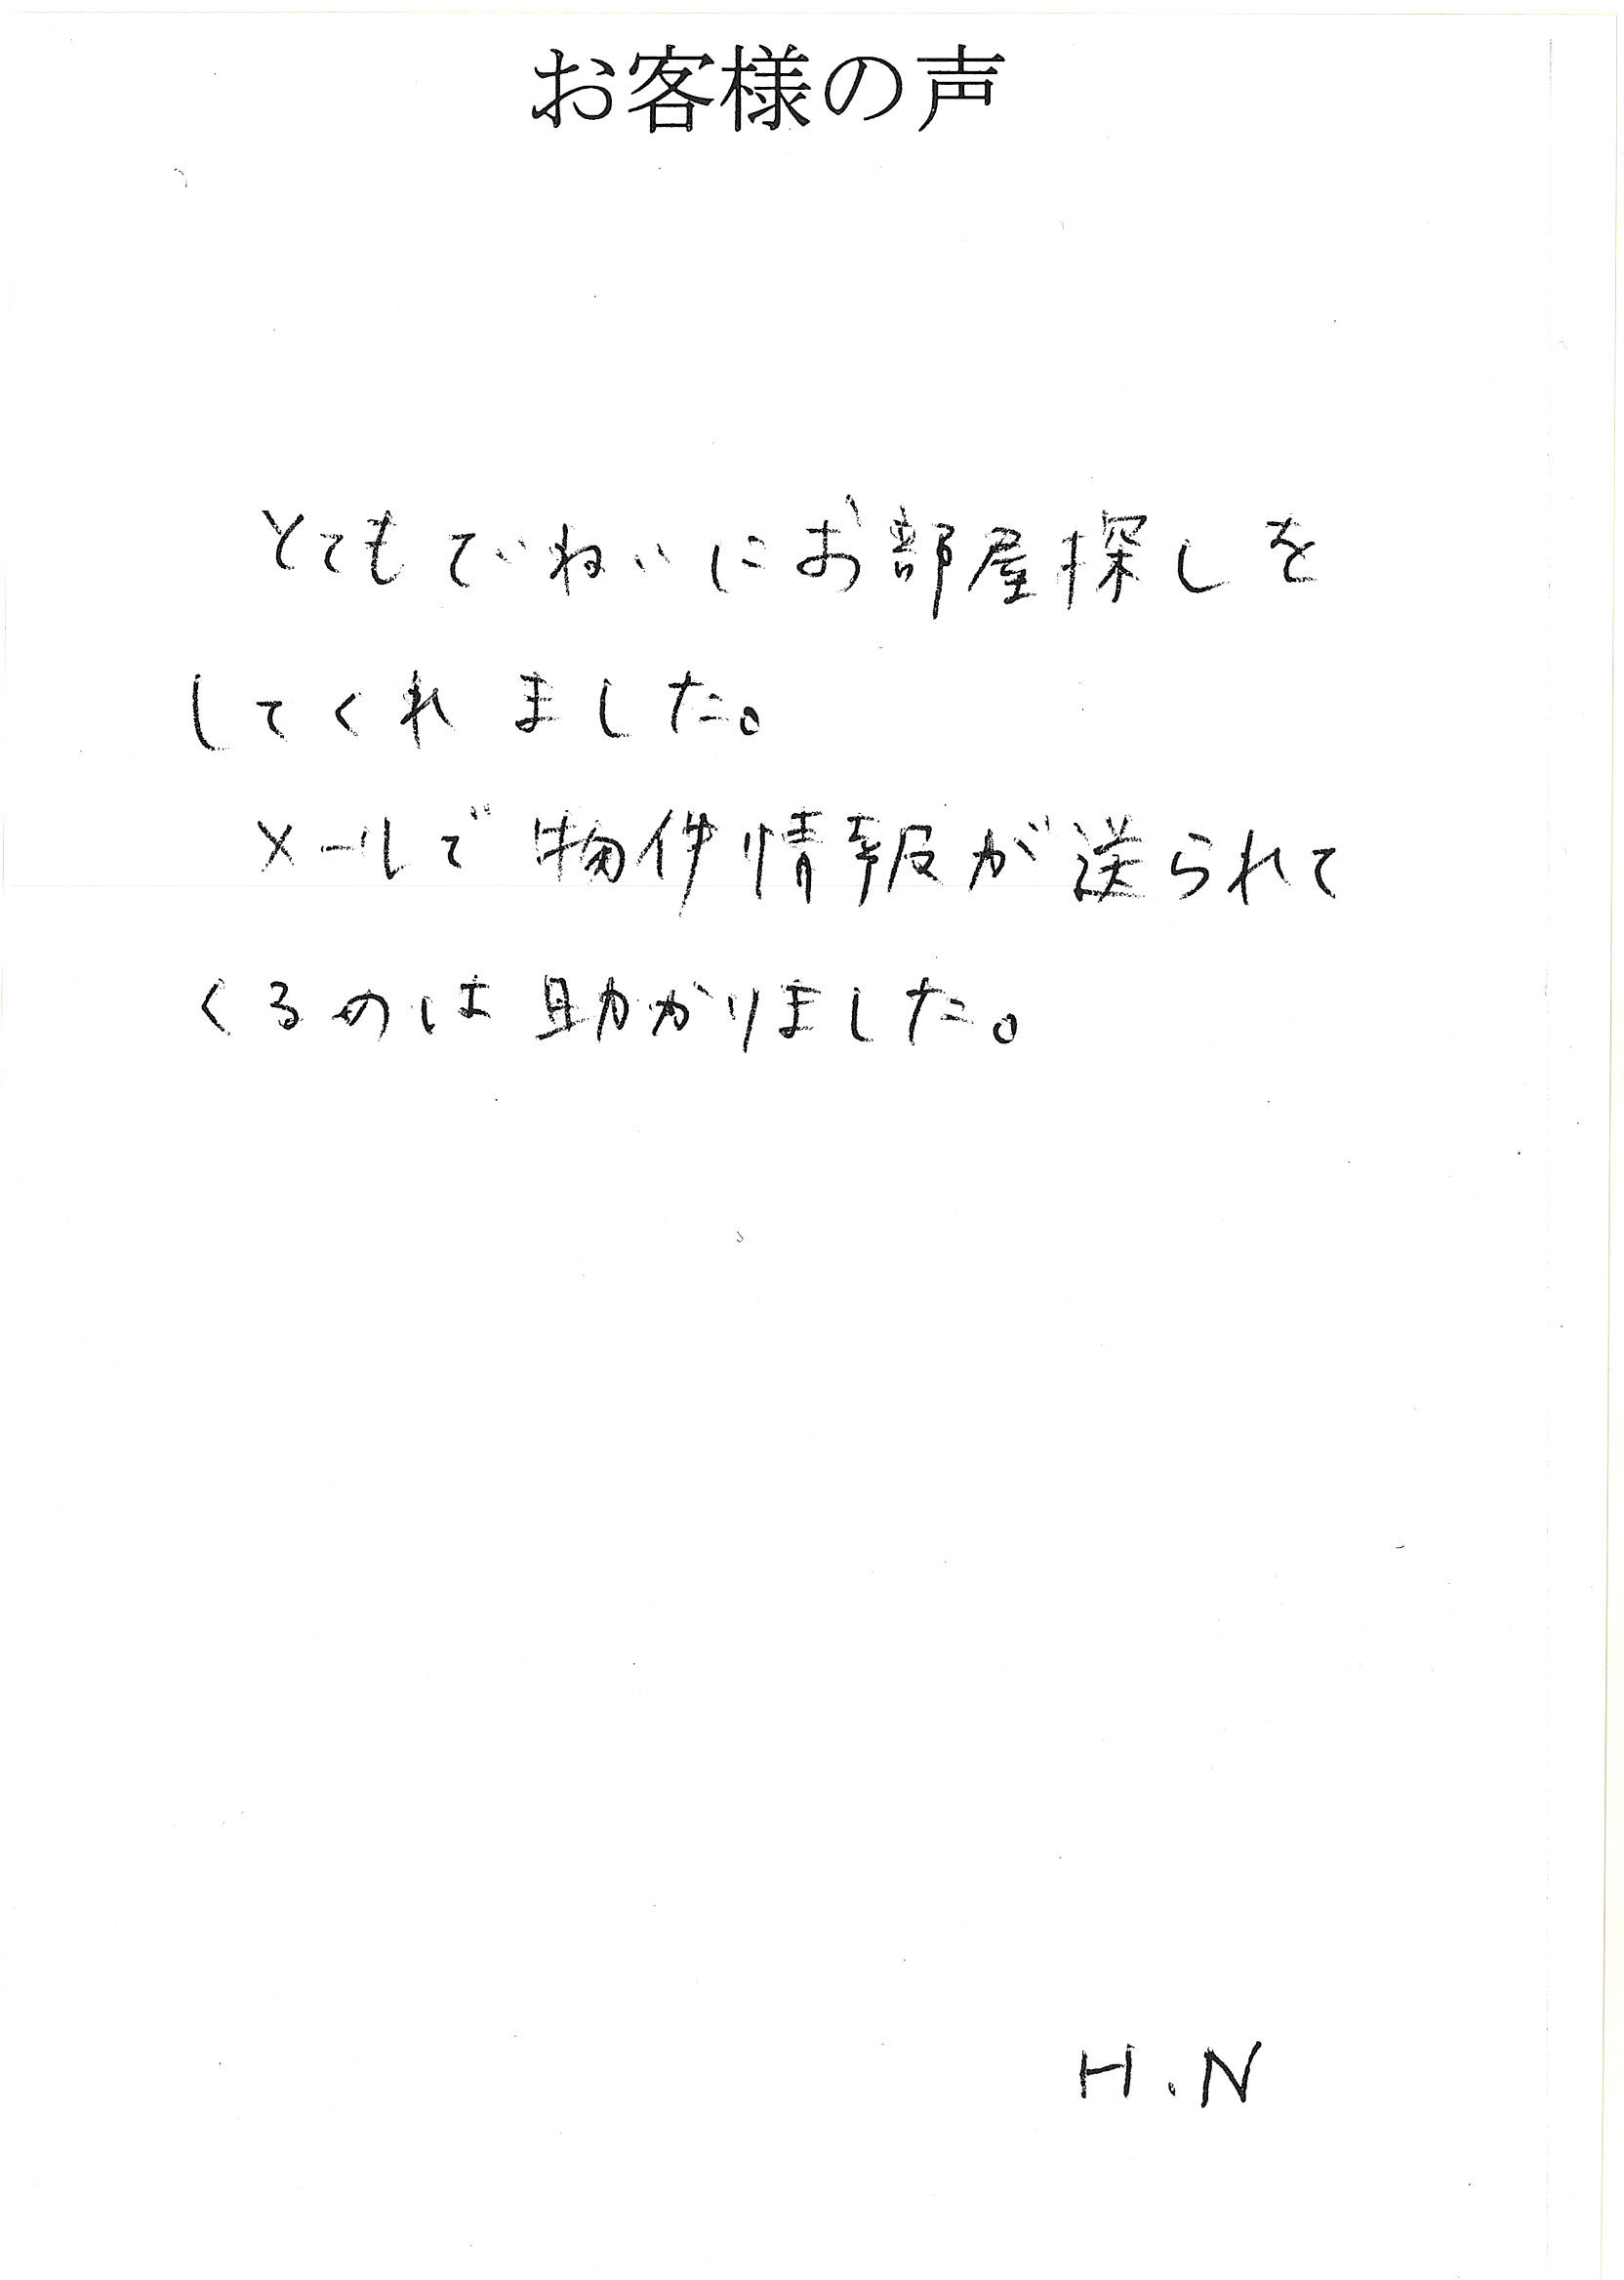 お客様の声
とてもていねいにお部屋探しを
してくれました。
メールで物件情報が送られて
くるのは助かりました。
H.N